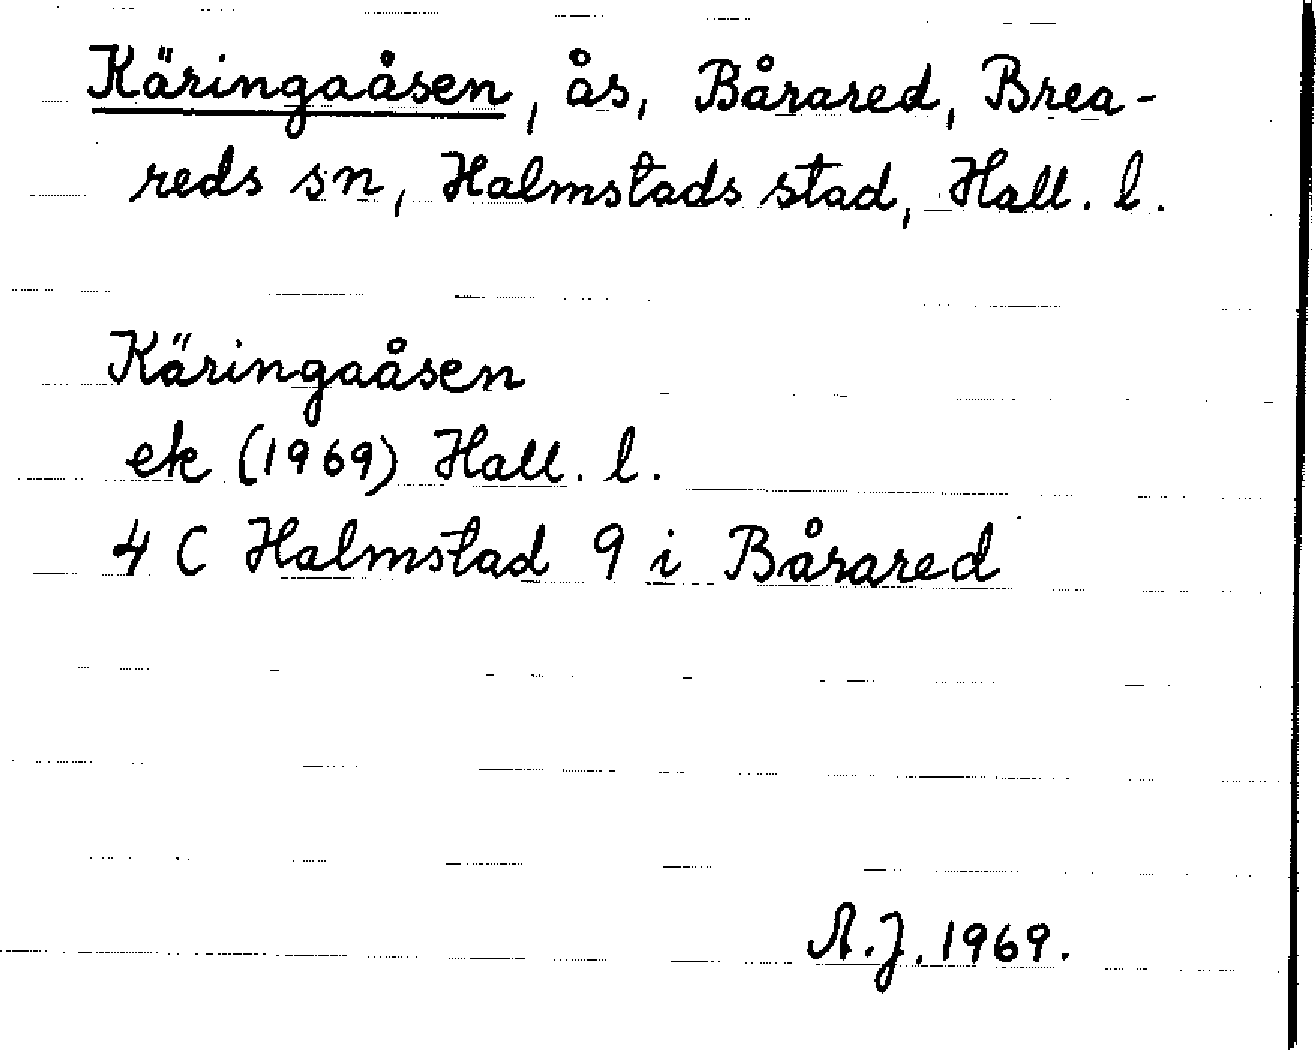 Käringaåsen, ås, Bårared, Brea-
reds sn, Halmstads stad, Hall. l.
Käringaåsen
ek (1969) Hall. l.
4 C Halmstad 9 i Bårared
A.J. 1969.